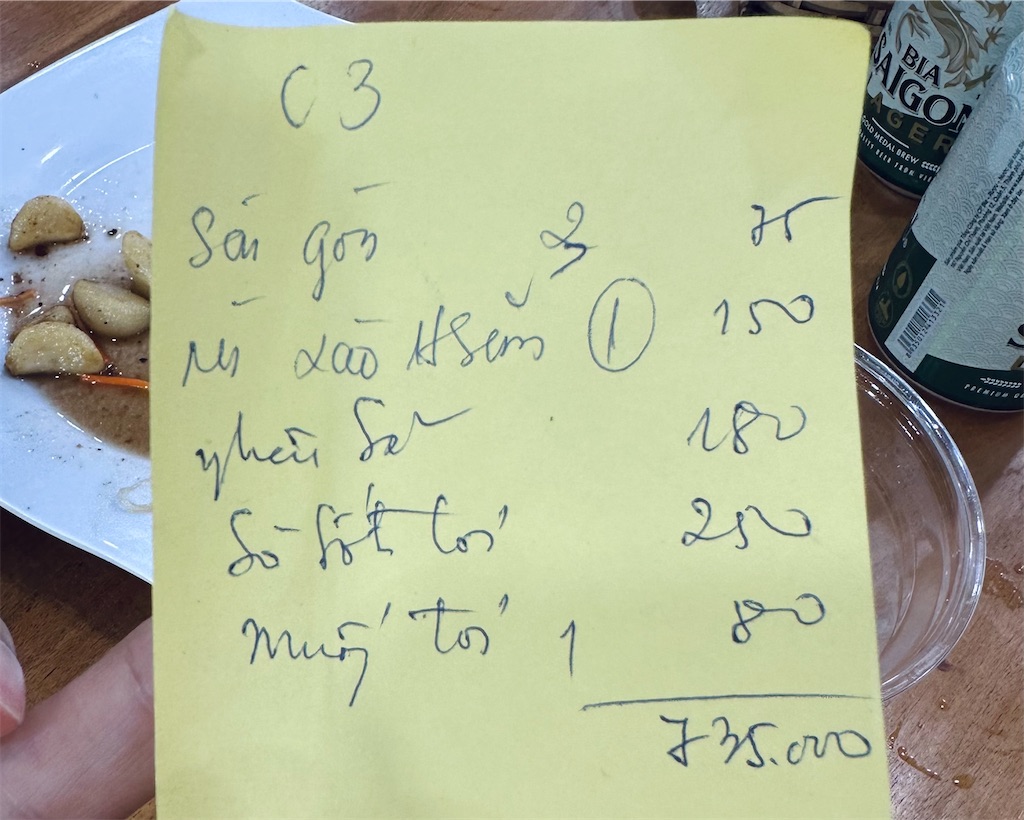 C3
Sài gòn 3 75
Mì xào Hsẽm 1 150
Sò 180
Sò Sốt tỏi 250
muống tỏi 1 80
735.000
BIA
SAIGON
LAGER
GOLD MEDAL BREW
PREMIUM